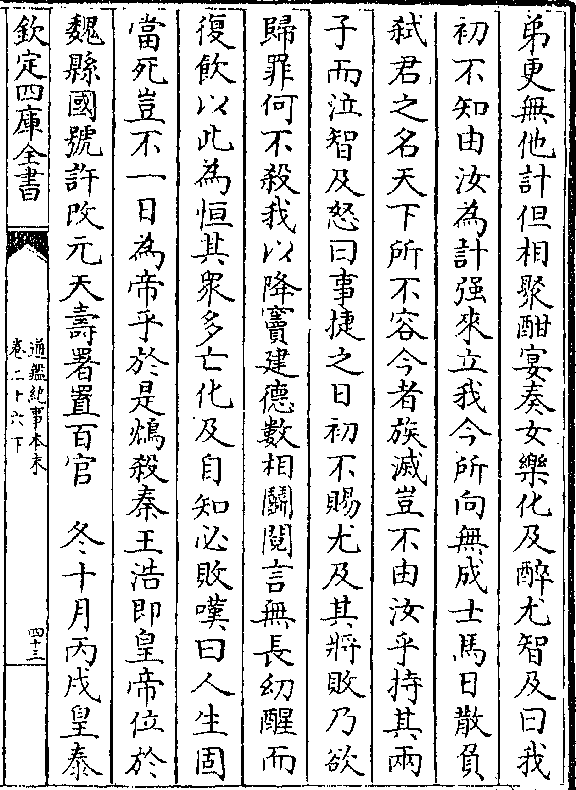 弟更無他計但相聚酣宴奏女樂化及醉尤智及曰我
初不知由汝為計强來立我今所向無成士馬日散負
弒君之名天下所不容今者族滅豈不由汝乎持其兩
子而泣智及怒曰事捷之日初不賜尤及其將敗乃欲
歸罪何不殺我以降竇建德數相鬭鬩言無長幼醒而
復飲以此為恒其衆多亡化及自知必敗嘆曰人生固
當死豈不一日為帝乎於是鴆殺秦王浩即皇帝位於
魏縣國號許改元天壽署置百官　冬十月丙戌皇泰
欽定四庫全書
通鑑紀事本末
卷二十六下
四十三